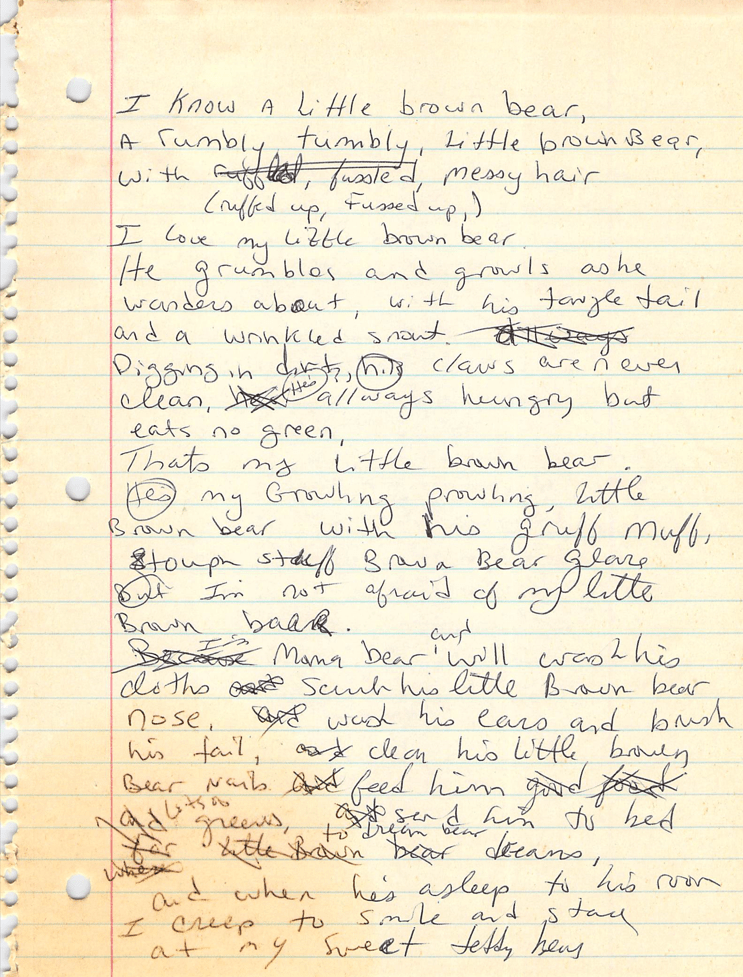 I Know A Little brown bear,
A rumbly, tumbly, Little brown Bear,
with ruffled, fussled, messy hair
(ruffed up, Fussed up,)
I love my little brown bear.
He grumbles and growls as he
wanders about, with his tangle tail
and a wrinkled snout. allways
Digging in dirt, his claws are never
clean, he's He's allways hungry but
eats no green,
Thats my Little brown bear.
He's my Growling prowling, little
Brown bear with his gruff Muff,
tough stuff Brown Bear glare
But I'm not afraid of my little
Brown bear.
Because I'm Mama bear and will wash his
cloths and Scrub his little Brown bear
nose, and wash his ears and brush
his tail, and clean his little brown
Bear nails and feed him good food
and Lots o greens, and send him to bed
for little Brown bear to dream bear dreams,
when
and when he's asleep to his room
I creep to smile and stare
at my sweet teddy bear